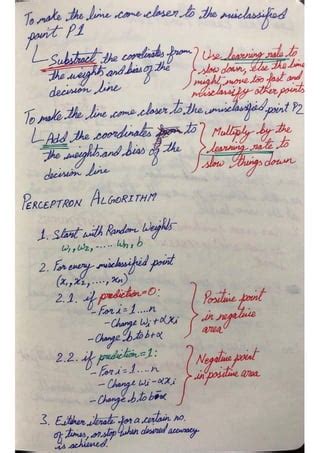 To make the line come closer to the misclassified
point P1
Substract the coordinates from
the weights and bias of the
decision line
Use learning rate to
slow down, else the line
might move too fast and
misclassify other points
To make the line come closer to the misclassified point P2
Add the coordinates to
the weights and bias of the
decision line
Multiply by the
learning rate to
slow things down
PERCEPTRON ALGORITHM
1. Start with Random Weights
w₁, w₂, ...... wn, b
2. For every misclassified point
(x₁, x₂, ....., xn)
2.1. if prediction=0:
- For i = 1 .... n
- Change wi + αxi
- Change b to b+α
Positive point
in negative
area
2.2. if prediction=1:
- For i = 1 .... n
- Change wi - αxi
- Change b to b-α
Negative point
in positive area
3. Either iterate for a certain no.
of times, or stop when desired accuracy
is achieved.